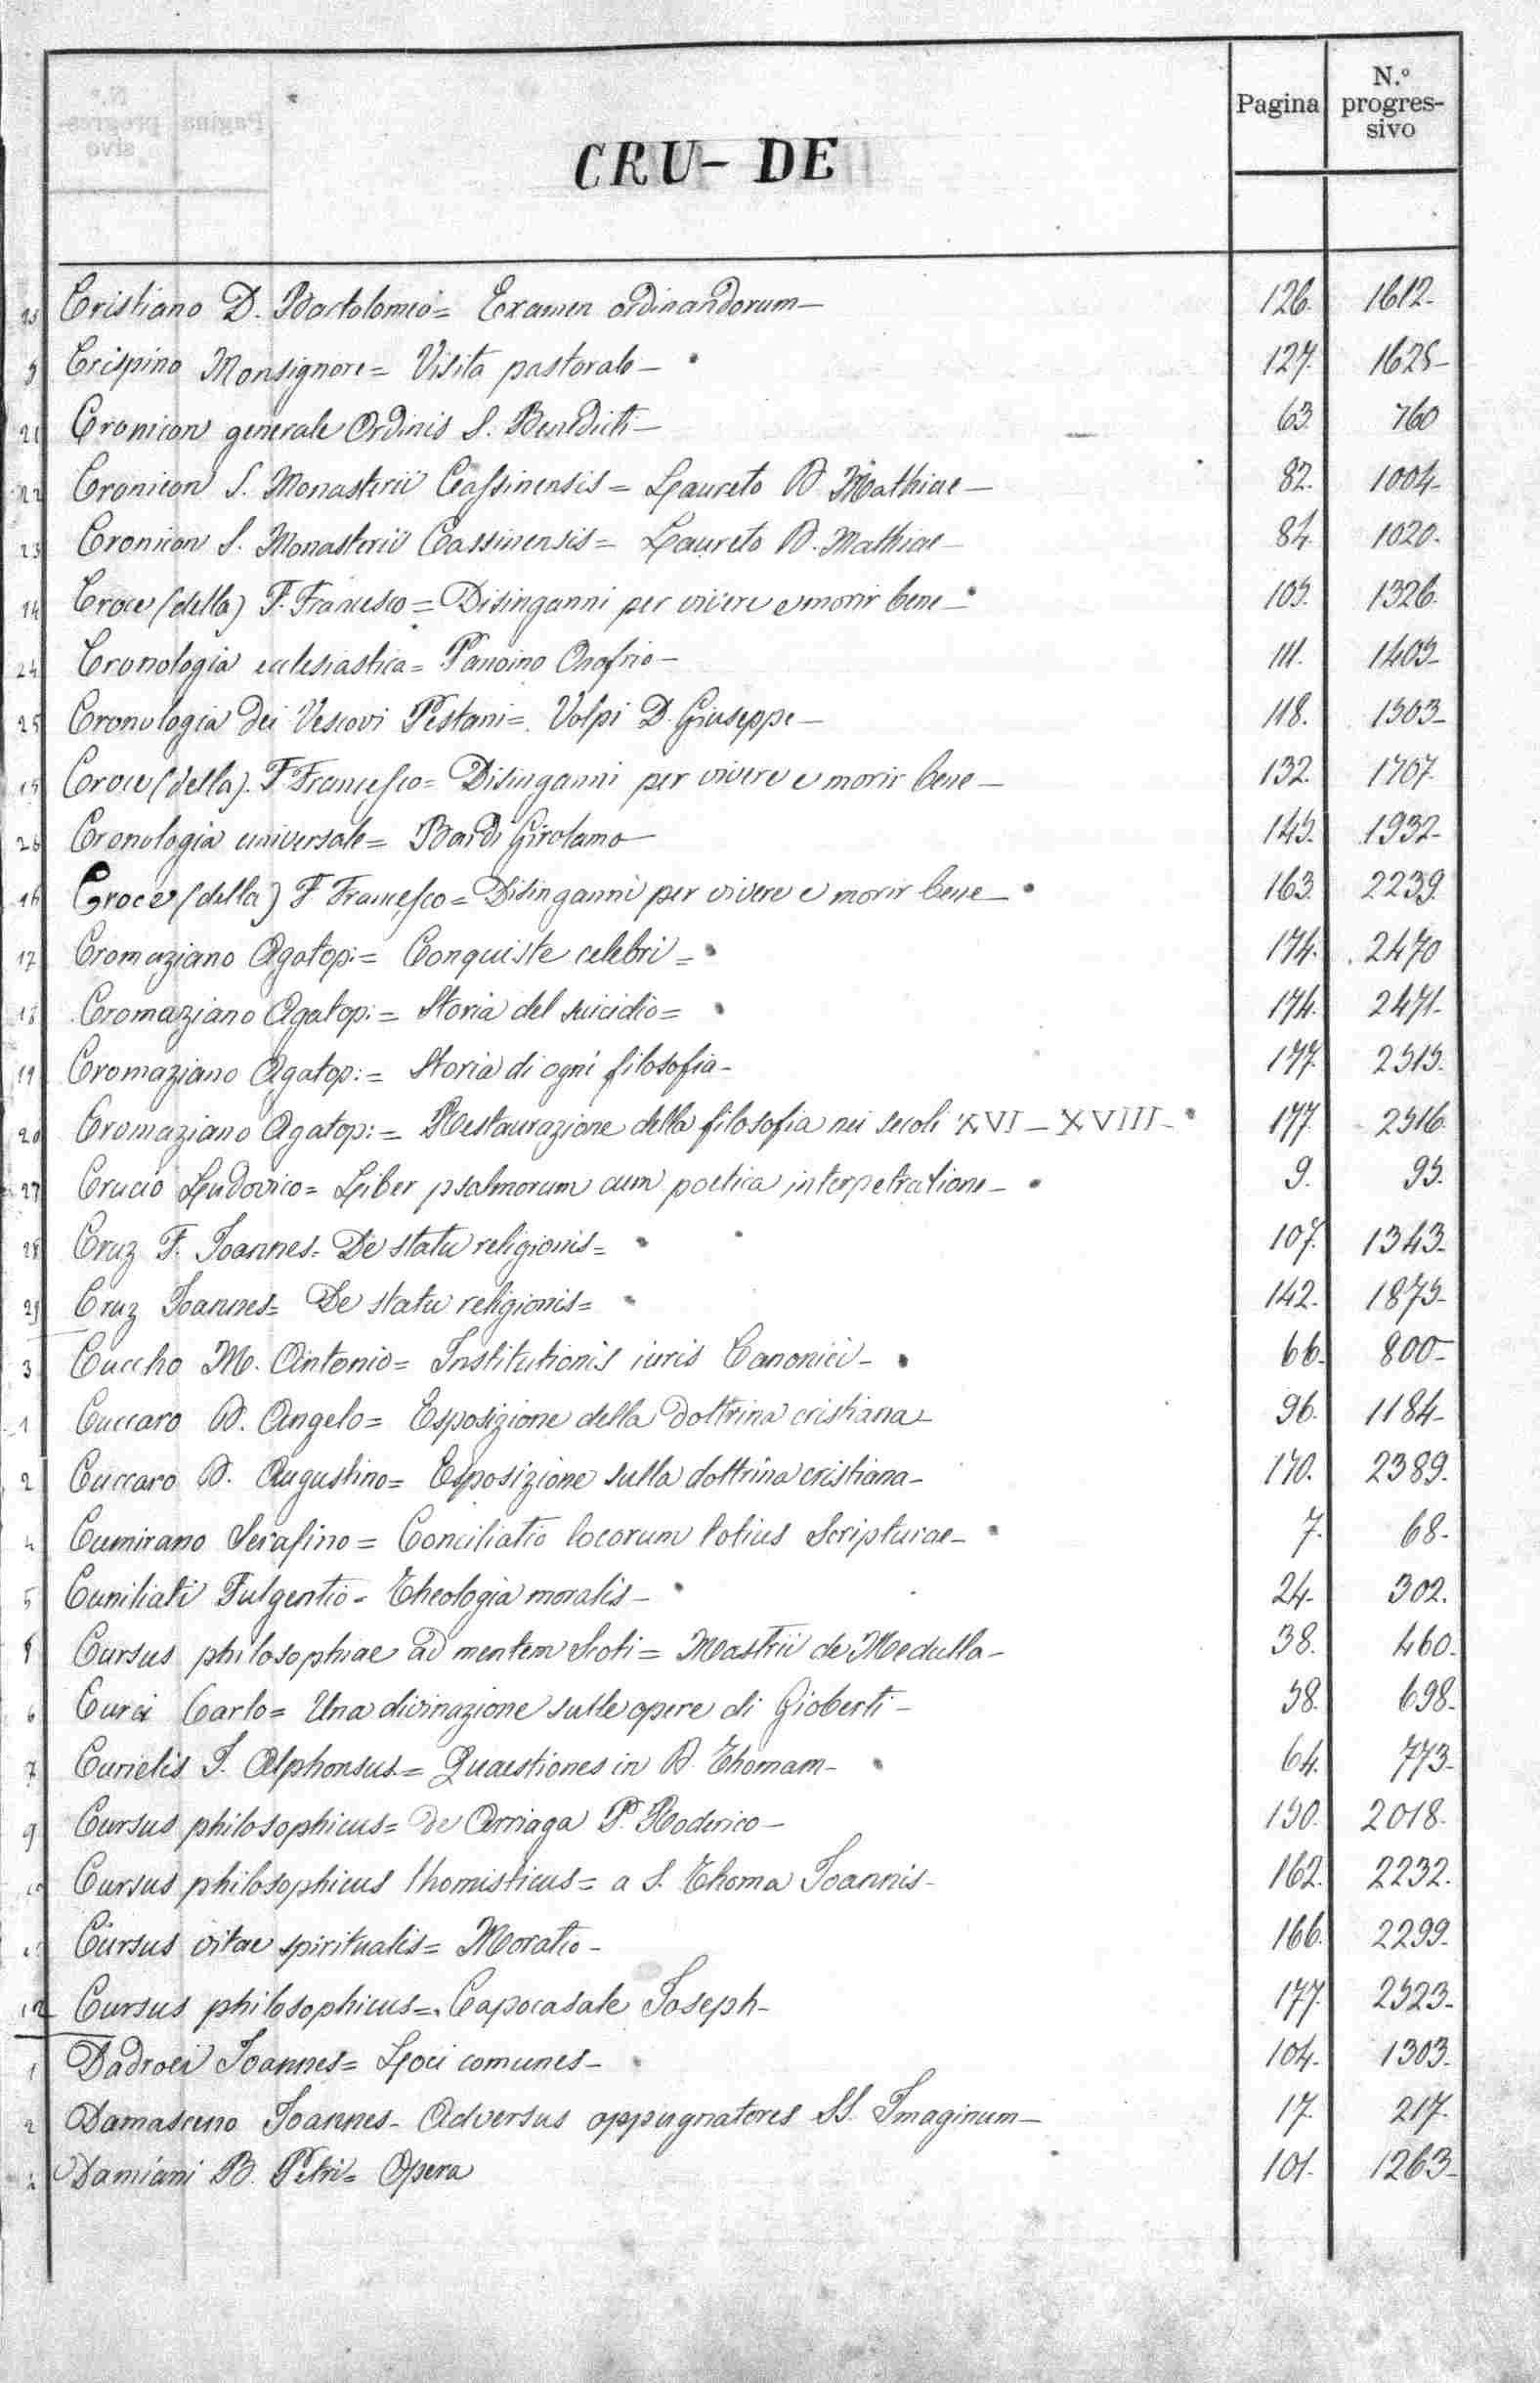 Pagina
N.° progres-
sivo
CRU - DE
Cristiano D. Bartolomeo = Examen ordinandorum - 126. 1612.
9 Crispino Monsignore = Visita pastorale - 127. 1625-
21 Cronicon generale Ordinis S. Benedicti - 63. 760
22 Cronicon S. Monasterii Cassinensis = Laureto D. Mathiae - 82. 1004-
23 Cronicon S. Monasterii Cassinensis = Laureto D. Mathiae - 84. 1020.
14 Croce (della) F. Francesco = Disinganni per vivere e morir bene - 105. 1326.
24 Cronologia ecclesiastica = Panvino Onofrio - 111. 1405-
25 Cronologia dei Vescovi Pestani = Volpi D. Giuseppe - 118. 1503-
15 Croce (della). F. Francesco = Disinganni per vivere e morir bene - 132. 1707.
26 Cronologia universale = Bardi Girolamo 145. 1932-
16 Croce (della) F. Francesco = Disinganni per vivere e morir bene - 163. 2239.
17 Cromaziano Agatop: = Conquiste celebri = 174. 2470
18 Cromaziano Agatop: = Storia del suicidio = 174. 2471-
19 Cromaziano Agatop: = Storia di ogni filosofia - 177. 2515.
20 Cromaziano Agatop: = Restaurazione della filosofia nei secoli XVI - XVIII - 177. 2516.
27 Crucio Ludovico = Liber psalmorum cum poetica interpetratione - 9. 95.
28 Cruz F. Joannes = De statu religionis = 107. 1343-
29 Cruz Joannes = De statu religionis = 142. 1875-
3 Cuccho M. Antonio = Institutionis iuris Canonici - 66. 800-
1 Cuccaro D. Angelo = Esposizione della dottrina cristiana - 96. 1184-
2 Cuccaro D. Augustino = Esposizione sulla dottrina cristiana - 170. 2389.
4 Cumirano Serafino = Conciliatio locorum totius Scripturae - 7. 68-
5 Cuniliati Fulgentio = Theologia moralis - 24- 302.
8 Cursus philosophiae ad mentem Scoti = Mastrii de Medulla - 38. 460.
6 Curci Carlo = Una divinazione sulle opere di Gioberti - 58. 698-
7 Curielis J. Alphonsus = Quaestiones in D. Thomam - 64. 773-
9 Cursus philosophicus = de Arriaga P. Roderico - 150. 2018.
Cursus philosophicus thomisticus = a S. Thoma Joannis - 162. 2232.
Cursus vitae spiritualis = Moratio - 166. 2299.
12 Cursus philosophicus = Capocasale Joseph - 177. 2523-
1 Dadroei Joannes = Loci comunes - 104- 1303.
2 Damasceno Joannes - Adversus oppugnatores SS. Imaginum - 17. 217.
Damiani B. Petri = Opera 101- 1263-